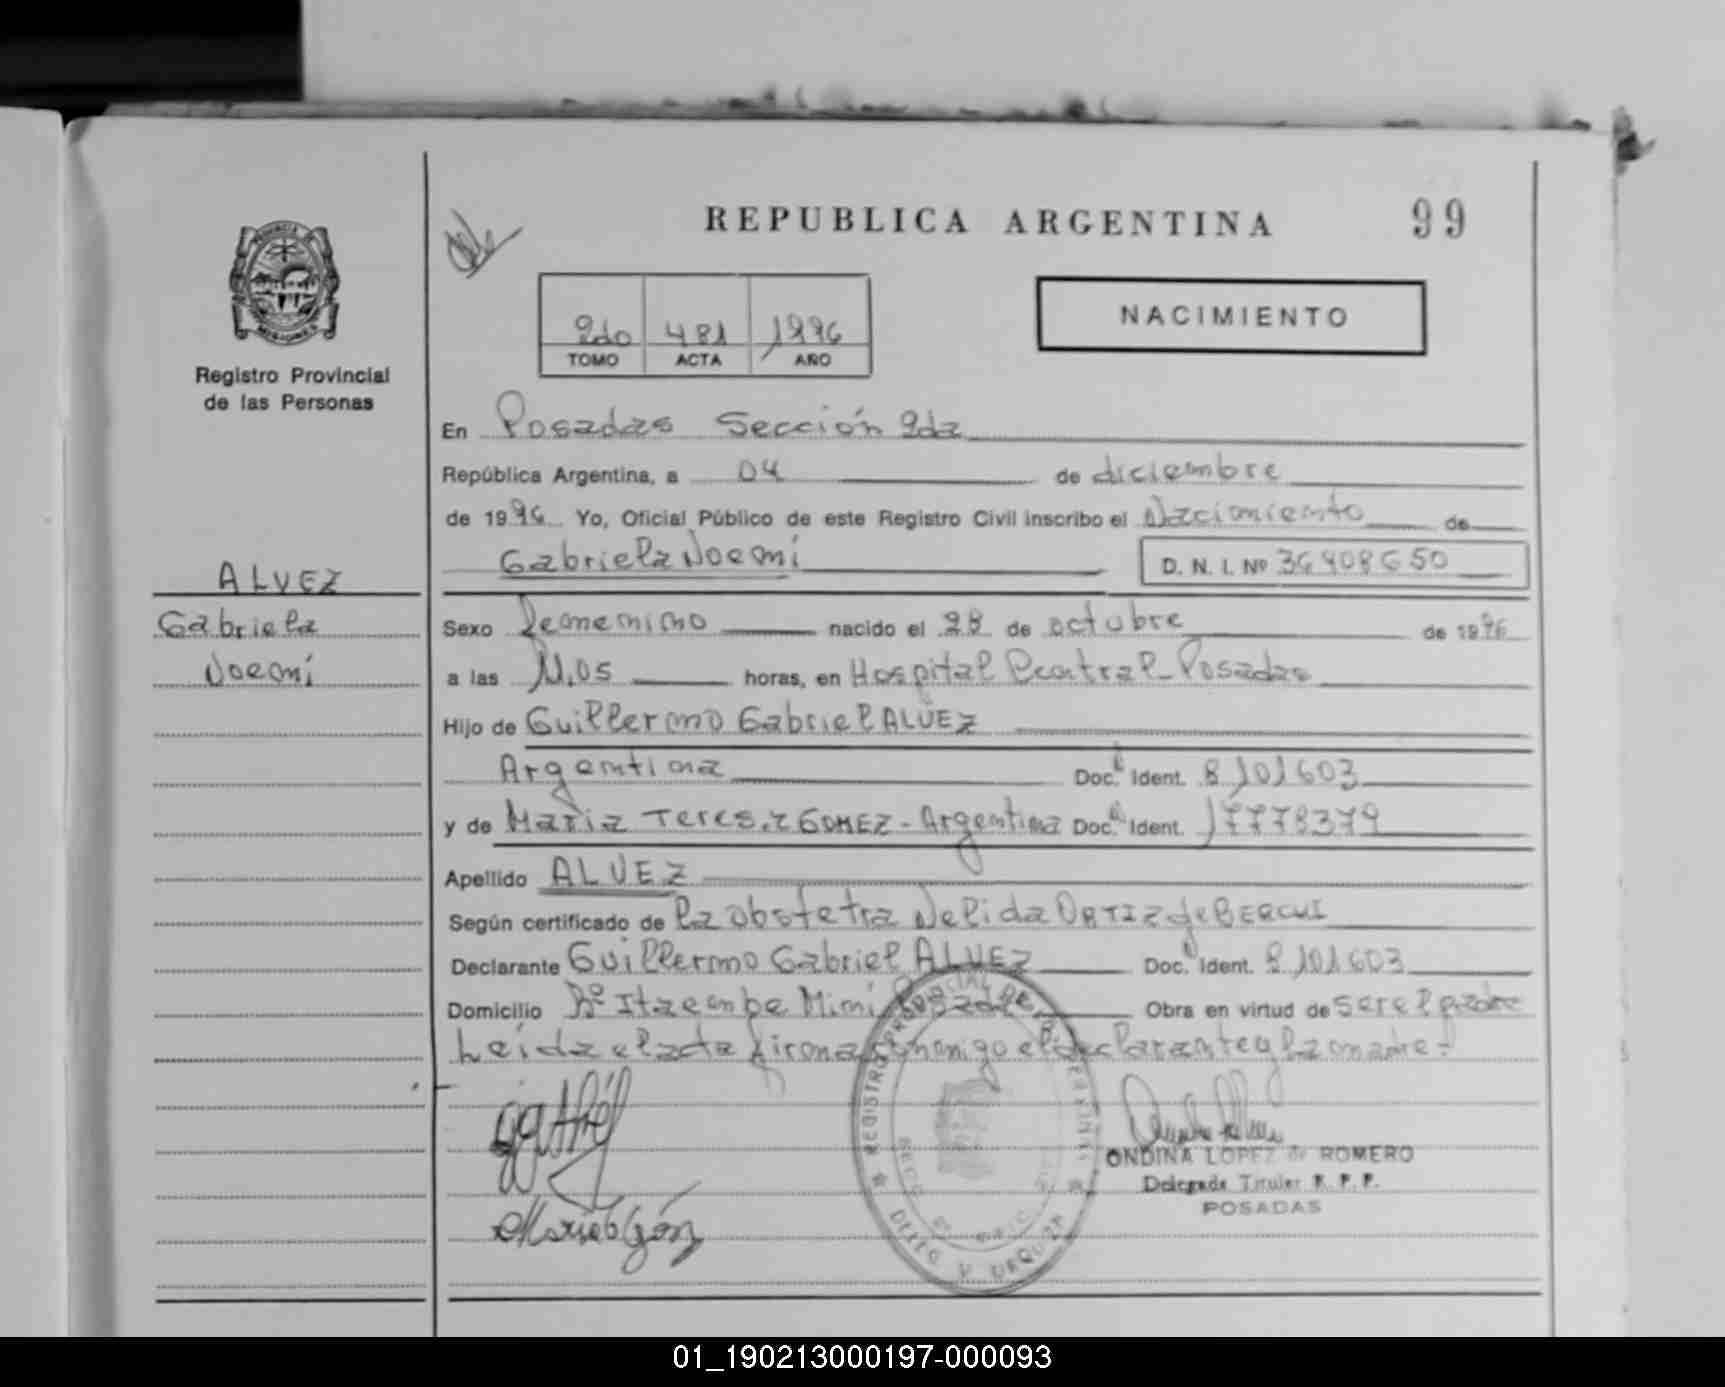 REPUBLICA ARGENTINA
99
NACIMIENTO
2do 481 1996
TOMO ACTA AÑO
Registro Provincial
de las Personas
ALVEZ
Gabriela
Noemí
En Posadas Sección 2da
República Argentina, a 04 de diciembre
de 1996 Yo, Oficial Público de este Registro Civil inscribo el Nacimiento de
Gabriela Noemí D. N. I. Nº 36408650
Sexo Femenino nacido el 28 de octubre de 1996
a las 11,05 horas, en Hospital Central - Posadas
Hijo de Guillermo Gabriel ALVEZ
Argentina Doc. Ident. 8101603
y de María Teresa GOMEZ - Argentina Doc. Ident. 17778379
Apellido ALVEZ
Según certificado de la obstetra Nelida ORTIZ de
Declarante Guillermo Gabriel ALVEZ Doc. Ident. 8101603
Domicilio Bº Itaembe Miní Posadas Obra en virtud de ser el padre
Leída el acta firman conmigo el declarante y la madre.
ONDINA LOPEZ de ROMERO
Delegada Titular R. P. P.
POSADAS
REGISTRO PROVINCIAL DE LAS PERSONAS
01_190213000197-000093